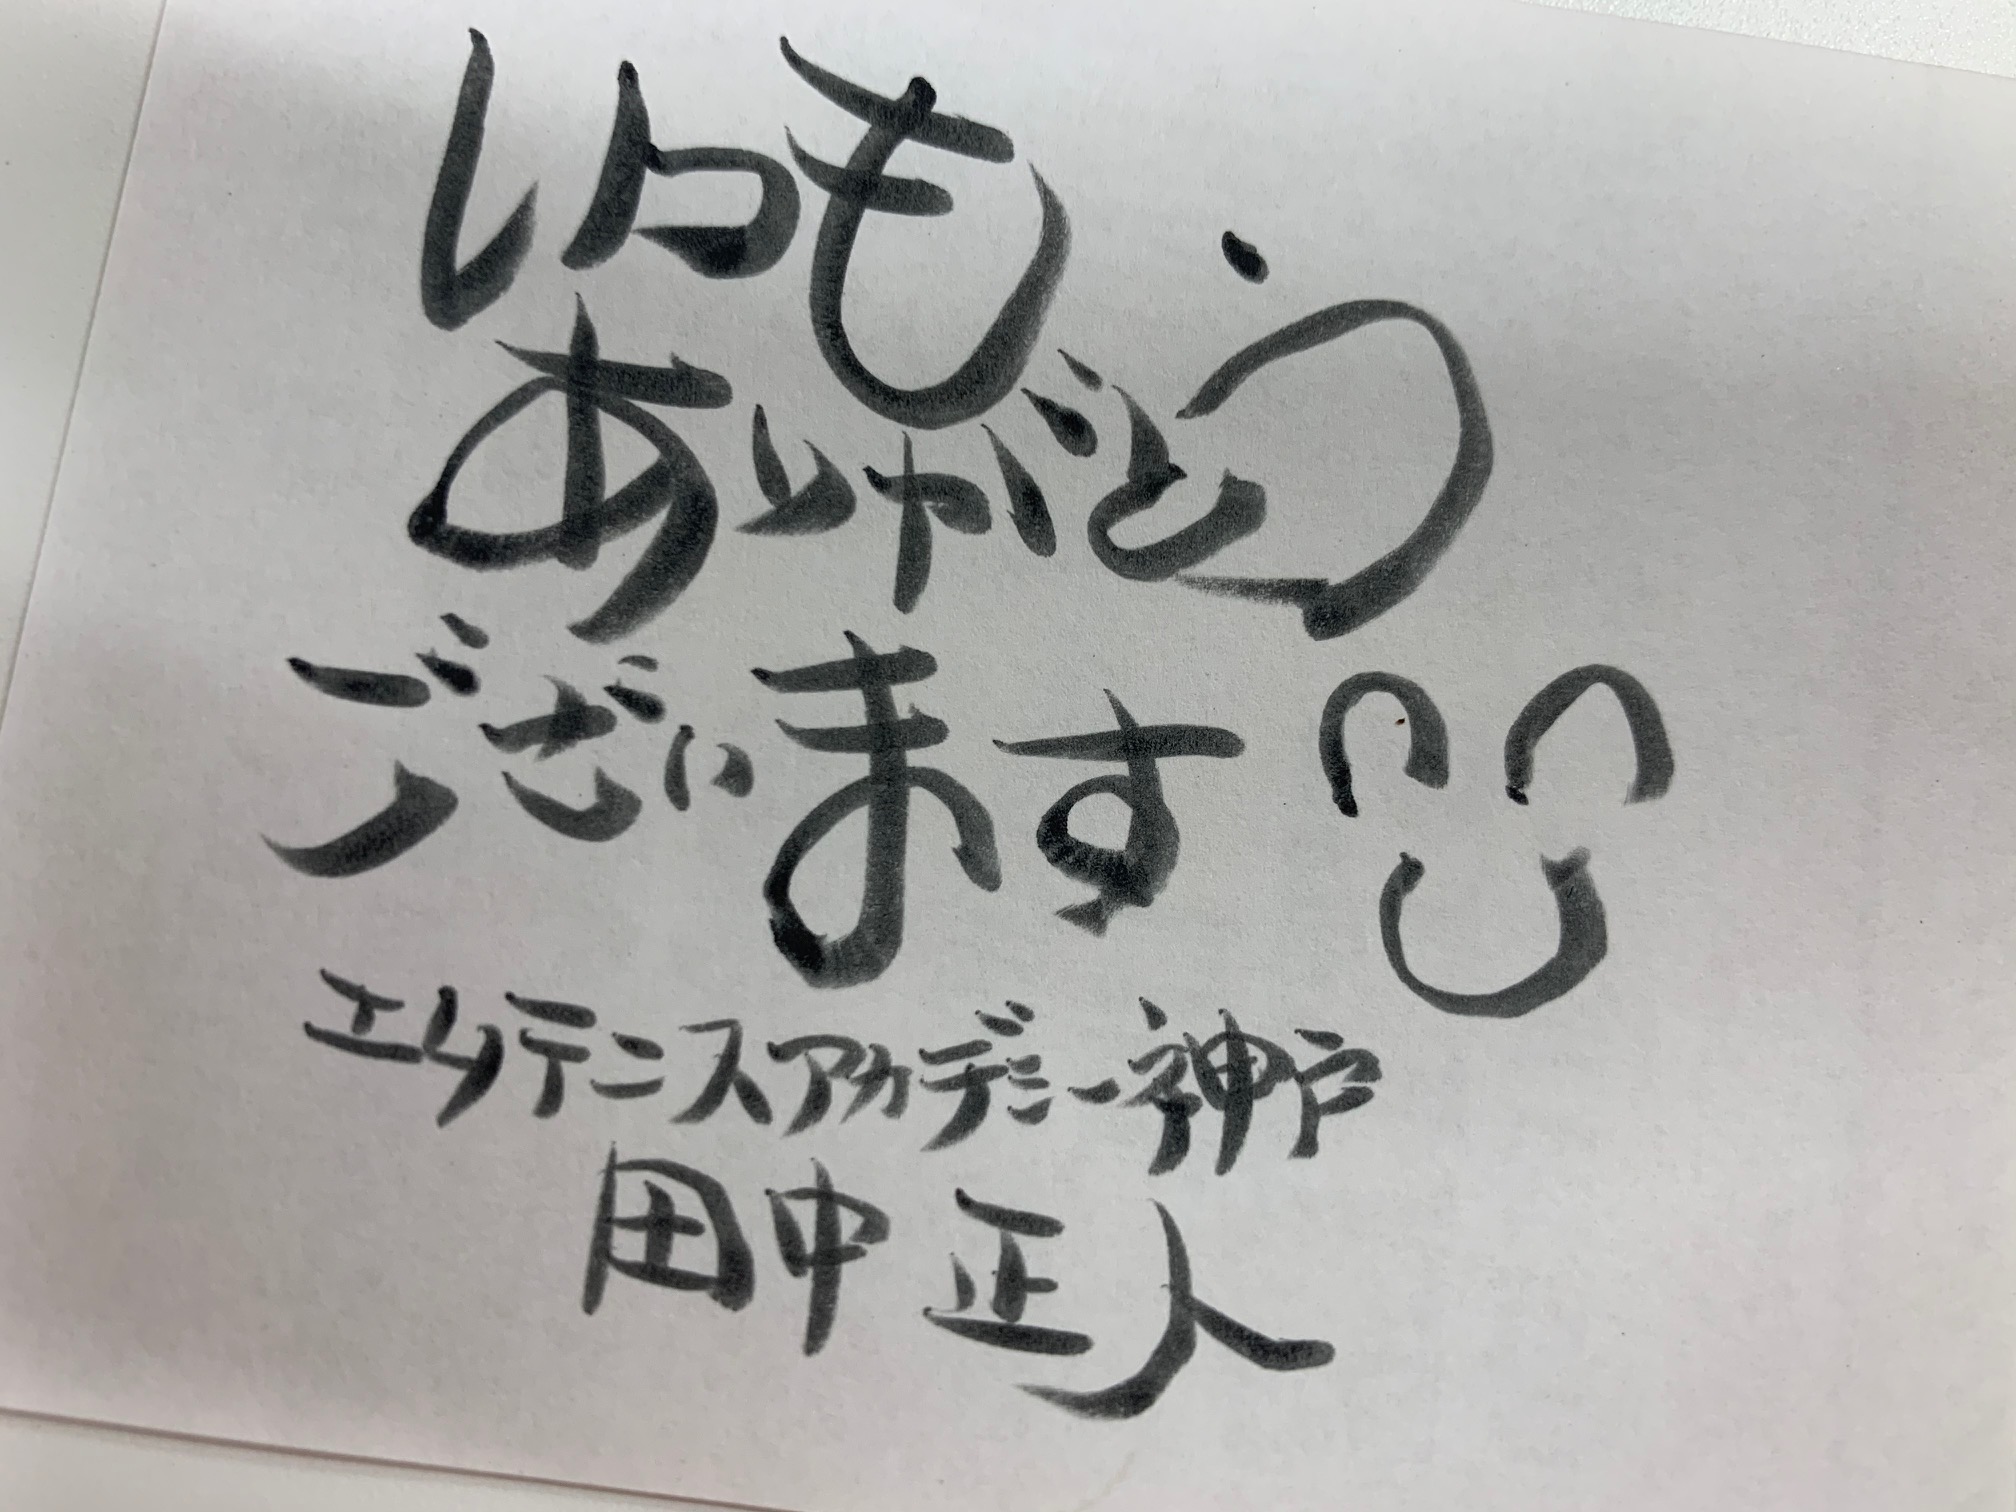 いつも
ありがとう
ございます
エムテニスアカデミー神戸
田中正人